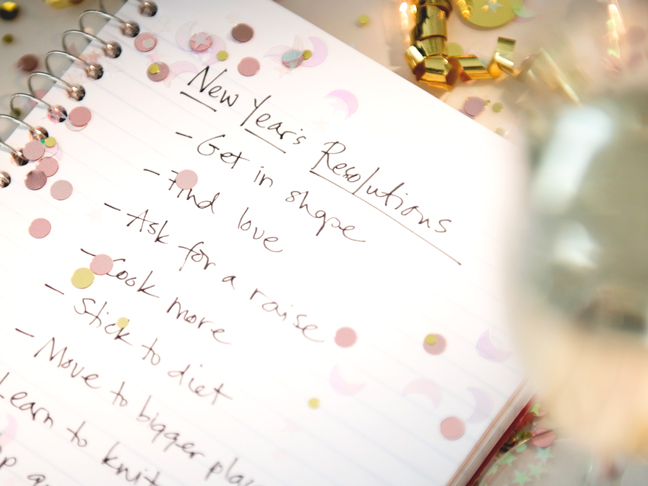 New Year's Resolutions
- Get in shape
- Find love
- Ask for a raise
- Cook more
- Stick to diet
- Move to bigger
Learn to knit